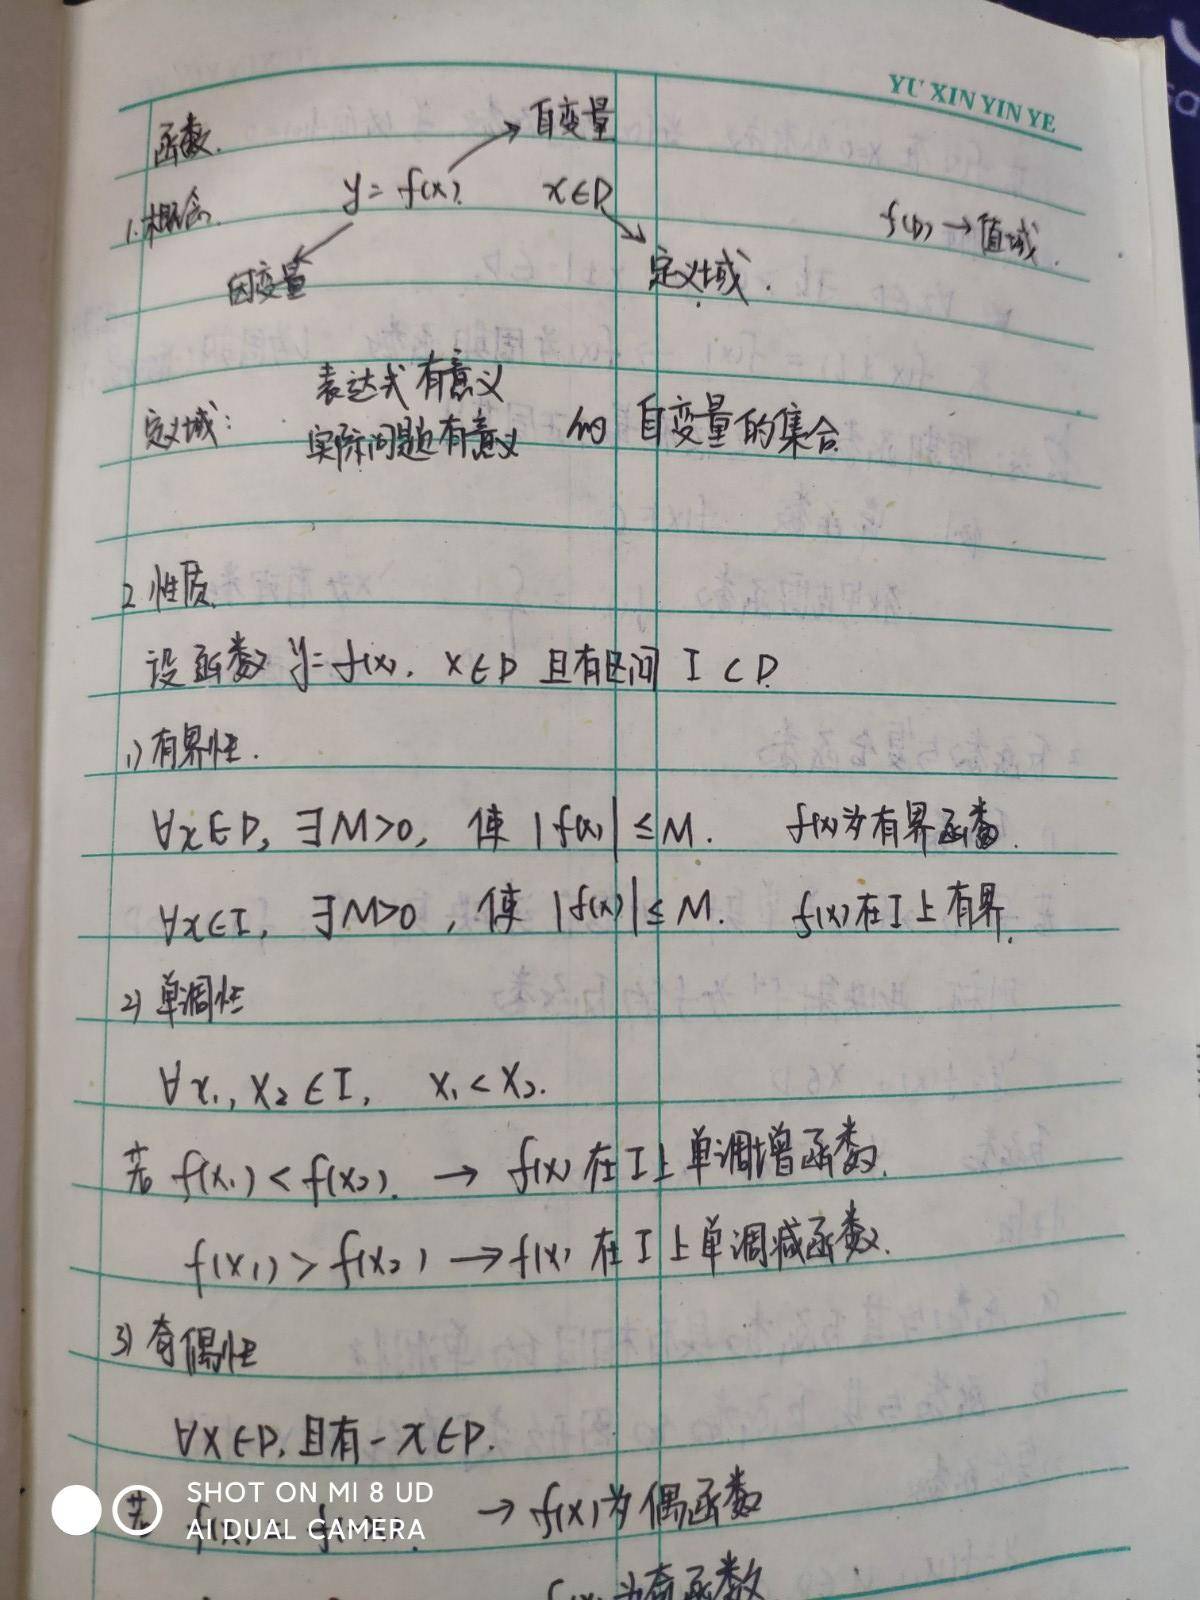 YU XIN YIN YE
函数.
自变量
1.概念.
y = f(x).
x∈D
f(D) → 值域.
因变量
定义域.
表达式有意义
定义域:
实际问题有意义 的 自变量的集合
2.性质.
设函数 y=f(x), x∈D 且有区间 I⊂D.
1)有界性.
∀x∈D, ∃M>0, 使 |f(x)| ≤ M. f(x)为有界函数.
∀x∈I, ∃M>0, 使 |f(x)| ≤ M. f(x)在I上有界.
2)单调性
∀x₁, x₂∈I, x₁<x₂.
若 f(x₁)<f(x₂). → f(x)在I上单调增函数.
f(x₁)>f(x₂) → f(x)在I上单调减函数.
3)奇偶性
∀x∈D, 且有-x∈D.
若 → f(x)为偶函数
f(x)为奇函数
SHOT ON MI 8 UD
AI DUAL CAMERA